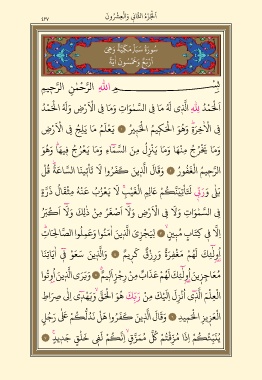 ٤٢٧ اَلْجُزْءُ الثَّانِي وَالْعِشْرُونَ
سُورَةُ سَبَأٍ مَكِّيَّةٌ وَهِيَ
اَرْبَعٌ وَخَمْسُونَ اٰيَةً
بِسْمِ اللّٰهِ الرَّحْمٰنِ الرَّحِيمِ
اَلْحَمْدُ لِلّٰهِ الَّذِي لَهُ مَا فِي السَّمٰوَاتِ وَمَا فِي الْاَرْضِ وَلَهُ الْحَمْدُ
فِي الْاٰخِرَةِ وَهُوَ الْحَكِيمُ الْخَبِيرُ ١ يَعْلَمُ مَا يَلِجُ فِي الْاَرْضِ
وَمَا يَخْرُجُ مِنْهَا وَمَا يَنْزِلُ مِنَ السَّمَاءِ وَمَا يَعْرُجُ فِيهَا وَهُوَ
الرَّحِيمُ الْغَفُورُ ٢ وَقَالَ الَّذِينَ كَفَرُوا لَا تَأْتِينَا السَّاعَةُ قُلْ
بَلٰى وَرَبِّي لَتَأْتِيَنَّكُمْ عَالِمِ الْغَيْبِ لَا يَعْزُبُ عَنْهُ مِثْقَالُ ذَرَّةٍ
فِي السَّمٰوَاتِ وَلَا فِي الْاَرْضِ وَلَا اَصْغَرُ مِنْ ذٰلِكَ وَلَا اَكْبَرُ
اِلَّا فِي كِتَابٍ مُبِينٍ ٣ لِيَجْزِيَ الَّذِينَ اٰمَنُوا وَعَمِلُوا الصَّالِحَاتِ
اُولٰئِكَ لَهُمْ مَغْفِرَةٌ وَرِزْقٌ كَرِيمٌ ٤ وَالَّذِينَ سَعَوْ فِي اٰيَاتِنَا
مُعَاجِزِينَ اُولٰئِكَ لَهُمْ عَذَابٌ مِنْ رِجْزٍ اَلِيمٌ ٥ وَيَرَى الَّذِينَ اُوتُوا
الْعِلْمَ الَّذِي اُنْزِلَ اِلَيْكَ مِنْ رَبِّكَ هُوَ الْحَقَّ وَيَهْدِي اِلٰى صِرَاطِ
الْعَزِيزِ الْحَمِيدِ ٦ وَقَالَ الَّذِينَ كَفَرُوا هَلْ نَدُلُّكُمْ عَلٰى رَجُلٍ
يُنَبِّئُكُمْ اِذَا مُزِّقْتُمْ كُلَّ مُمَزَّقٍ اِنَّكُمْ لَفِي خَلْقٍ جَدِيدٍ ٧